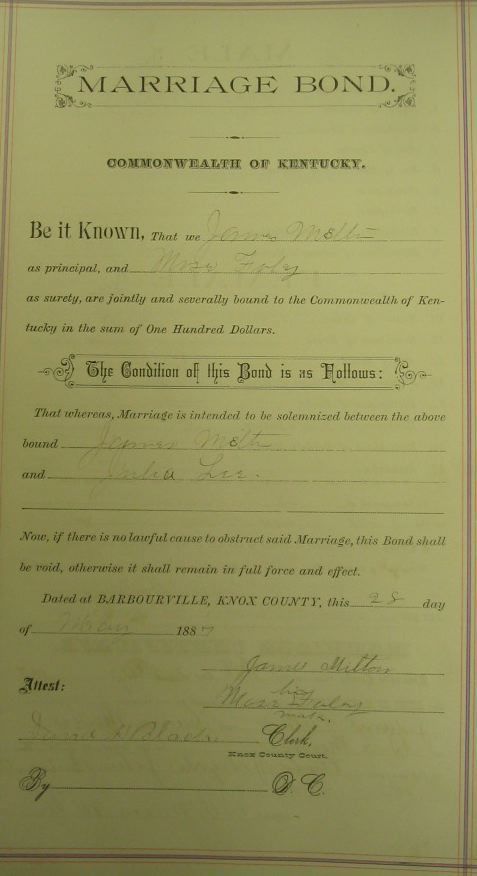 MARRIAGE BOND.
COMMONWEALTH OF KENTUCKY.
Be it Known, That we James Milton
as principal, and Foley
as surety, are jointly and severally bound to the Commonwealth of Ken-
tucky in the sum of One Hundred Dollars.
The Condition of this Bond is as Follows:
That whereas, Marriage is intended to be solemnized between the above
bound James Milton
and Julia Lee.
Now, if there is no lawful cause to obstruct said Marriage, this Bond shall
be void, otherwise it shall remain in full force and effect.
Dated at BARBOURVILLE, KNOX COUNTY, this 28 day
of 1887
James Milton
Attest:
his
Foley
mark.
Clerk,
Knox County Court.
By D. C.